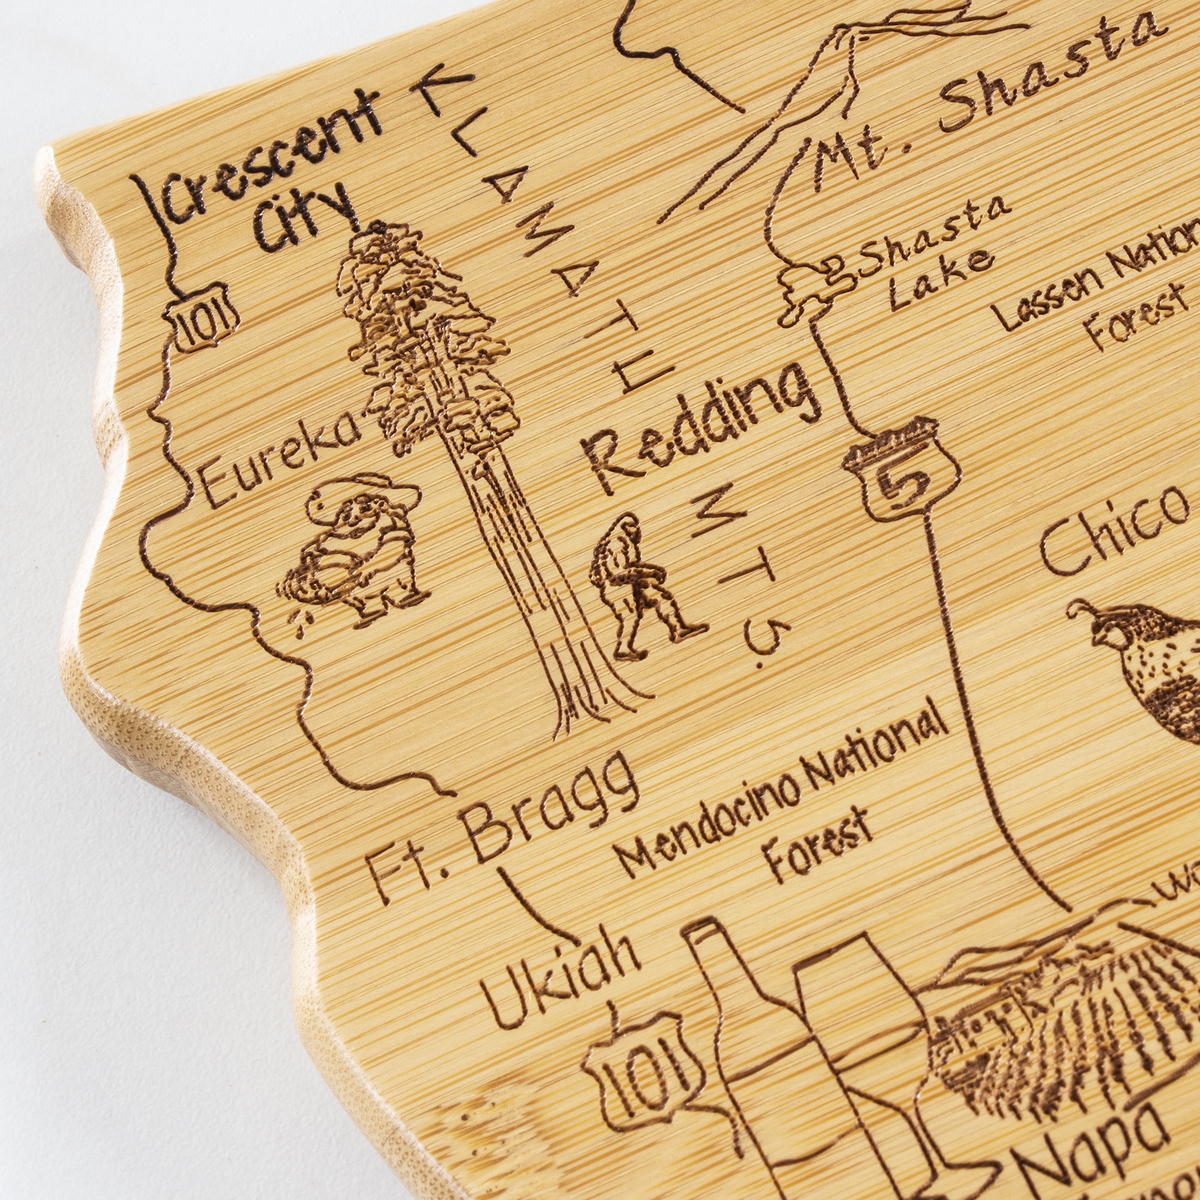 Crescent
City
KLAMATH
MTS.
Mt. Shasta
Shasta
Lake
Lassen
Forest
101
Eureka
Redding
5
Chico
Ft. Bragg
Mendocino National
Forest
Ukiah
101
Napa